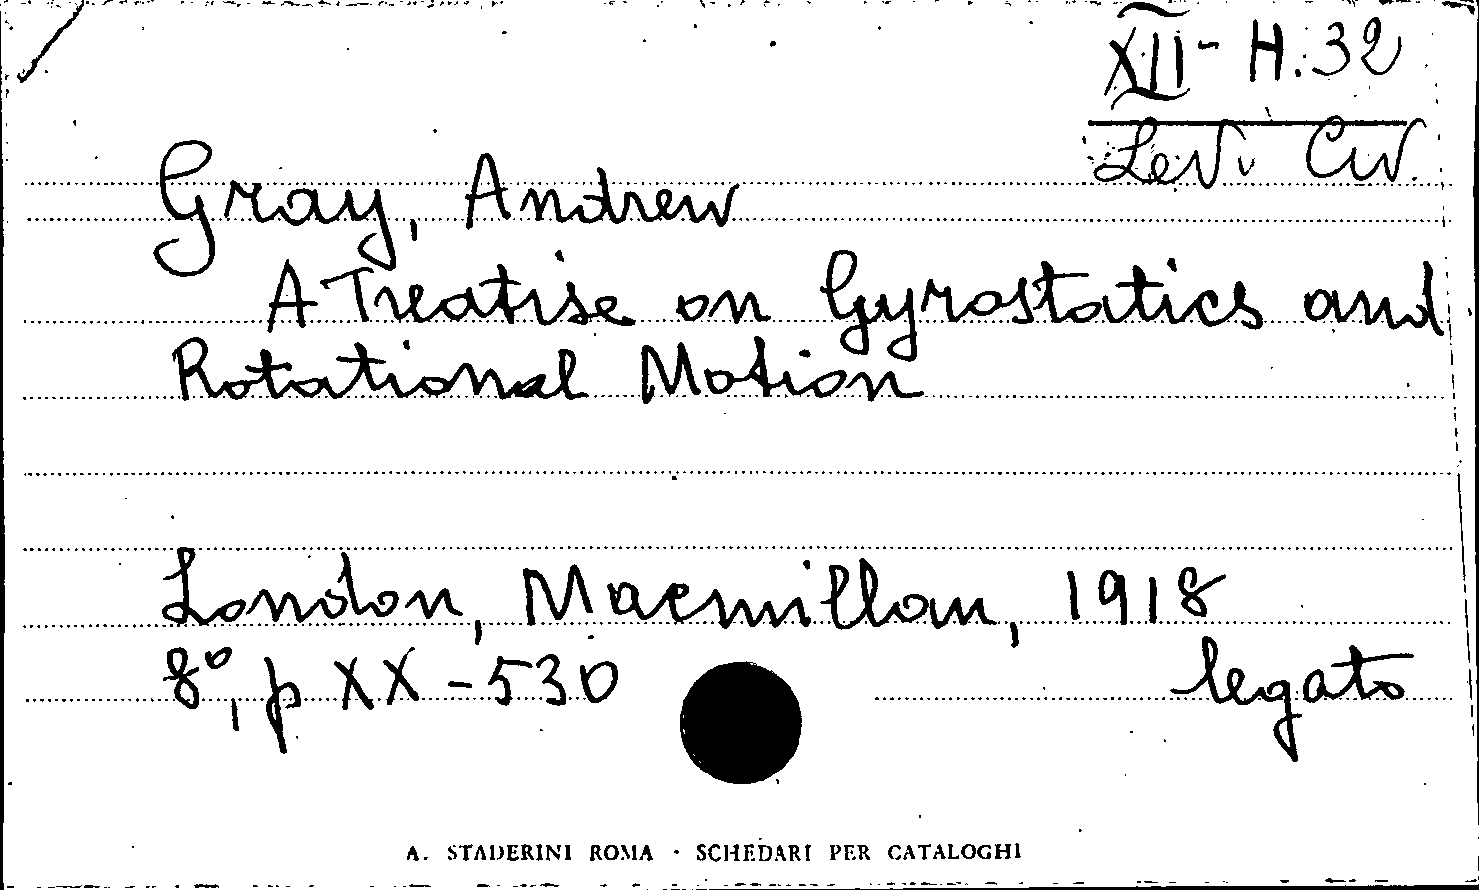 XII - H. 32
Levi Civ.
Gray, Andrew
A Treatise on Gyrostatics and
Rotational Motion
London, Macmillan, 1918
8°, p XX - 530
legato
A. STADERINI ROMA · SCHEDARI PER CATALOGHI